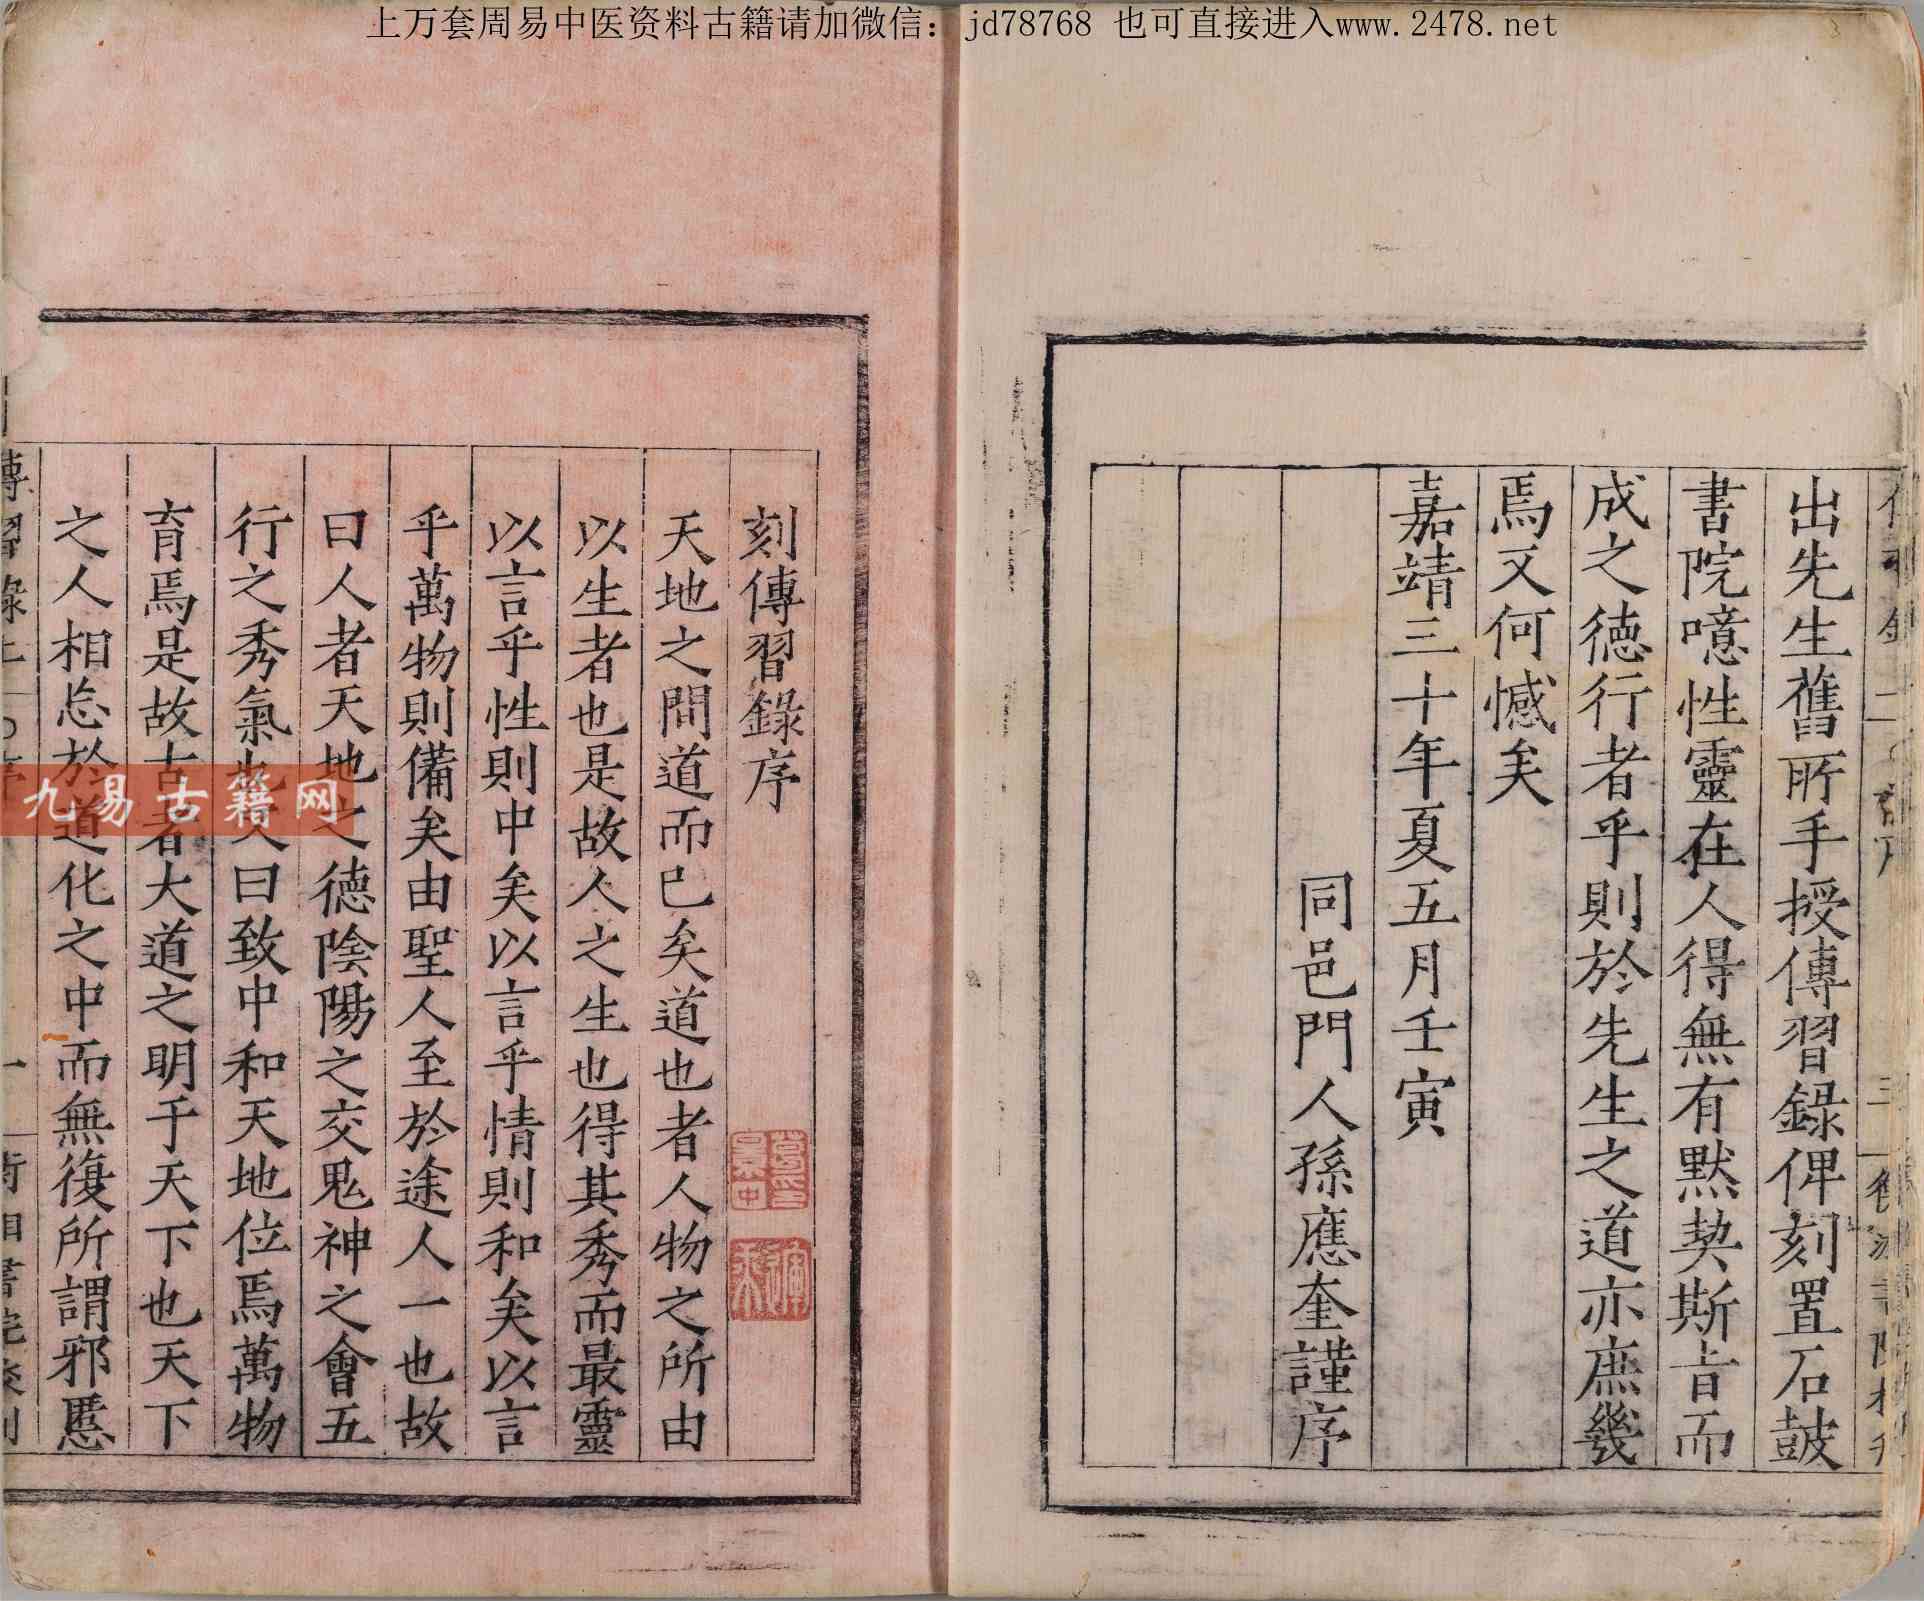 上万套周易中医资料古籍请加微信：jd78768 也可直接进入www.2478.net
出先生舊所手授傳習錄俾刻置石鼓
書院噫性靈在人得無有默契斯旨而
成之德行者乎則於先生之道亦庶幾
焉又何憾矣
嘉靖三十年夏五月壬寅
同邑門人孫應奎謹序
刻傳習錄序
天地之間道而已矣道也者人物之所由
以生者也是故人之生也得其秀而最靈
以言乎性則中矣以言乎情則和矣以言
乎萬物則備矣由聖人至於途人一也故
曰人者天地之德陰陽之交鬼神之會五
行之秀氣也又曰致中和天地位焉萬物
育焉是故古者大道之明于天下也天下
之人相忘於道化之中而無復所謂邪慝
傳習錄上 序 一
九易古籍网